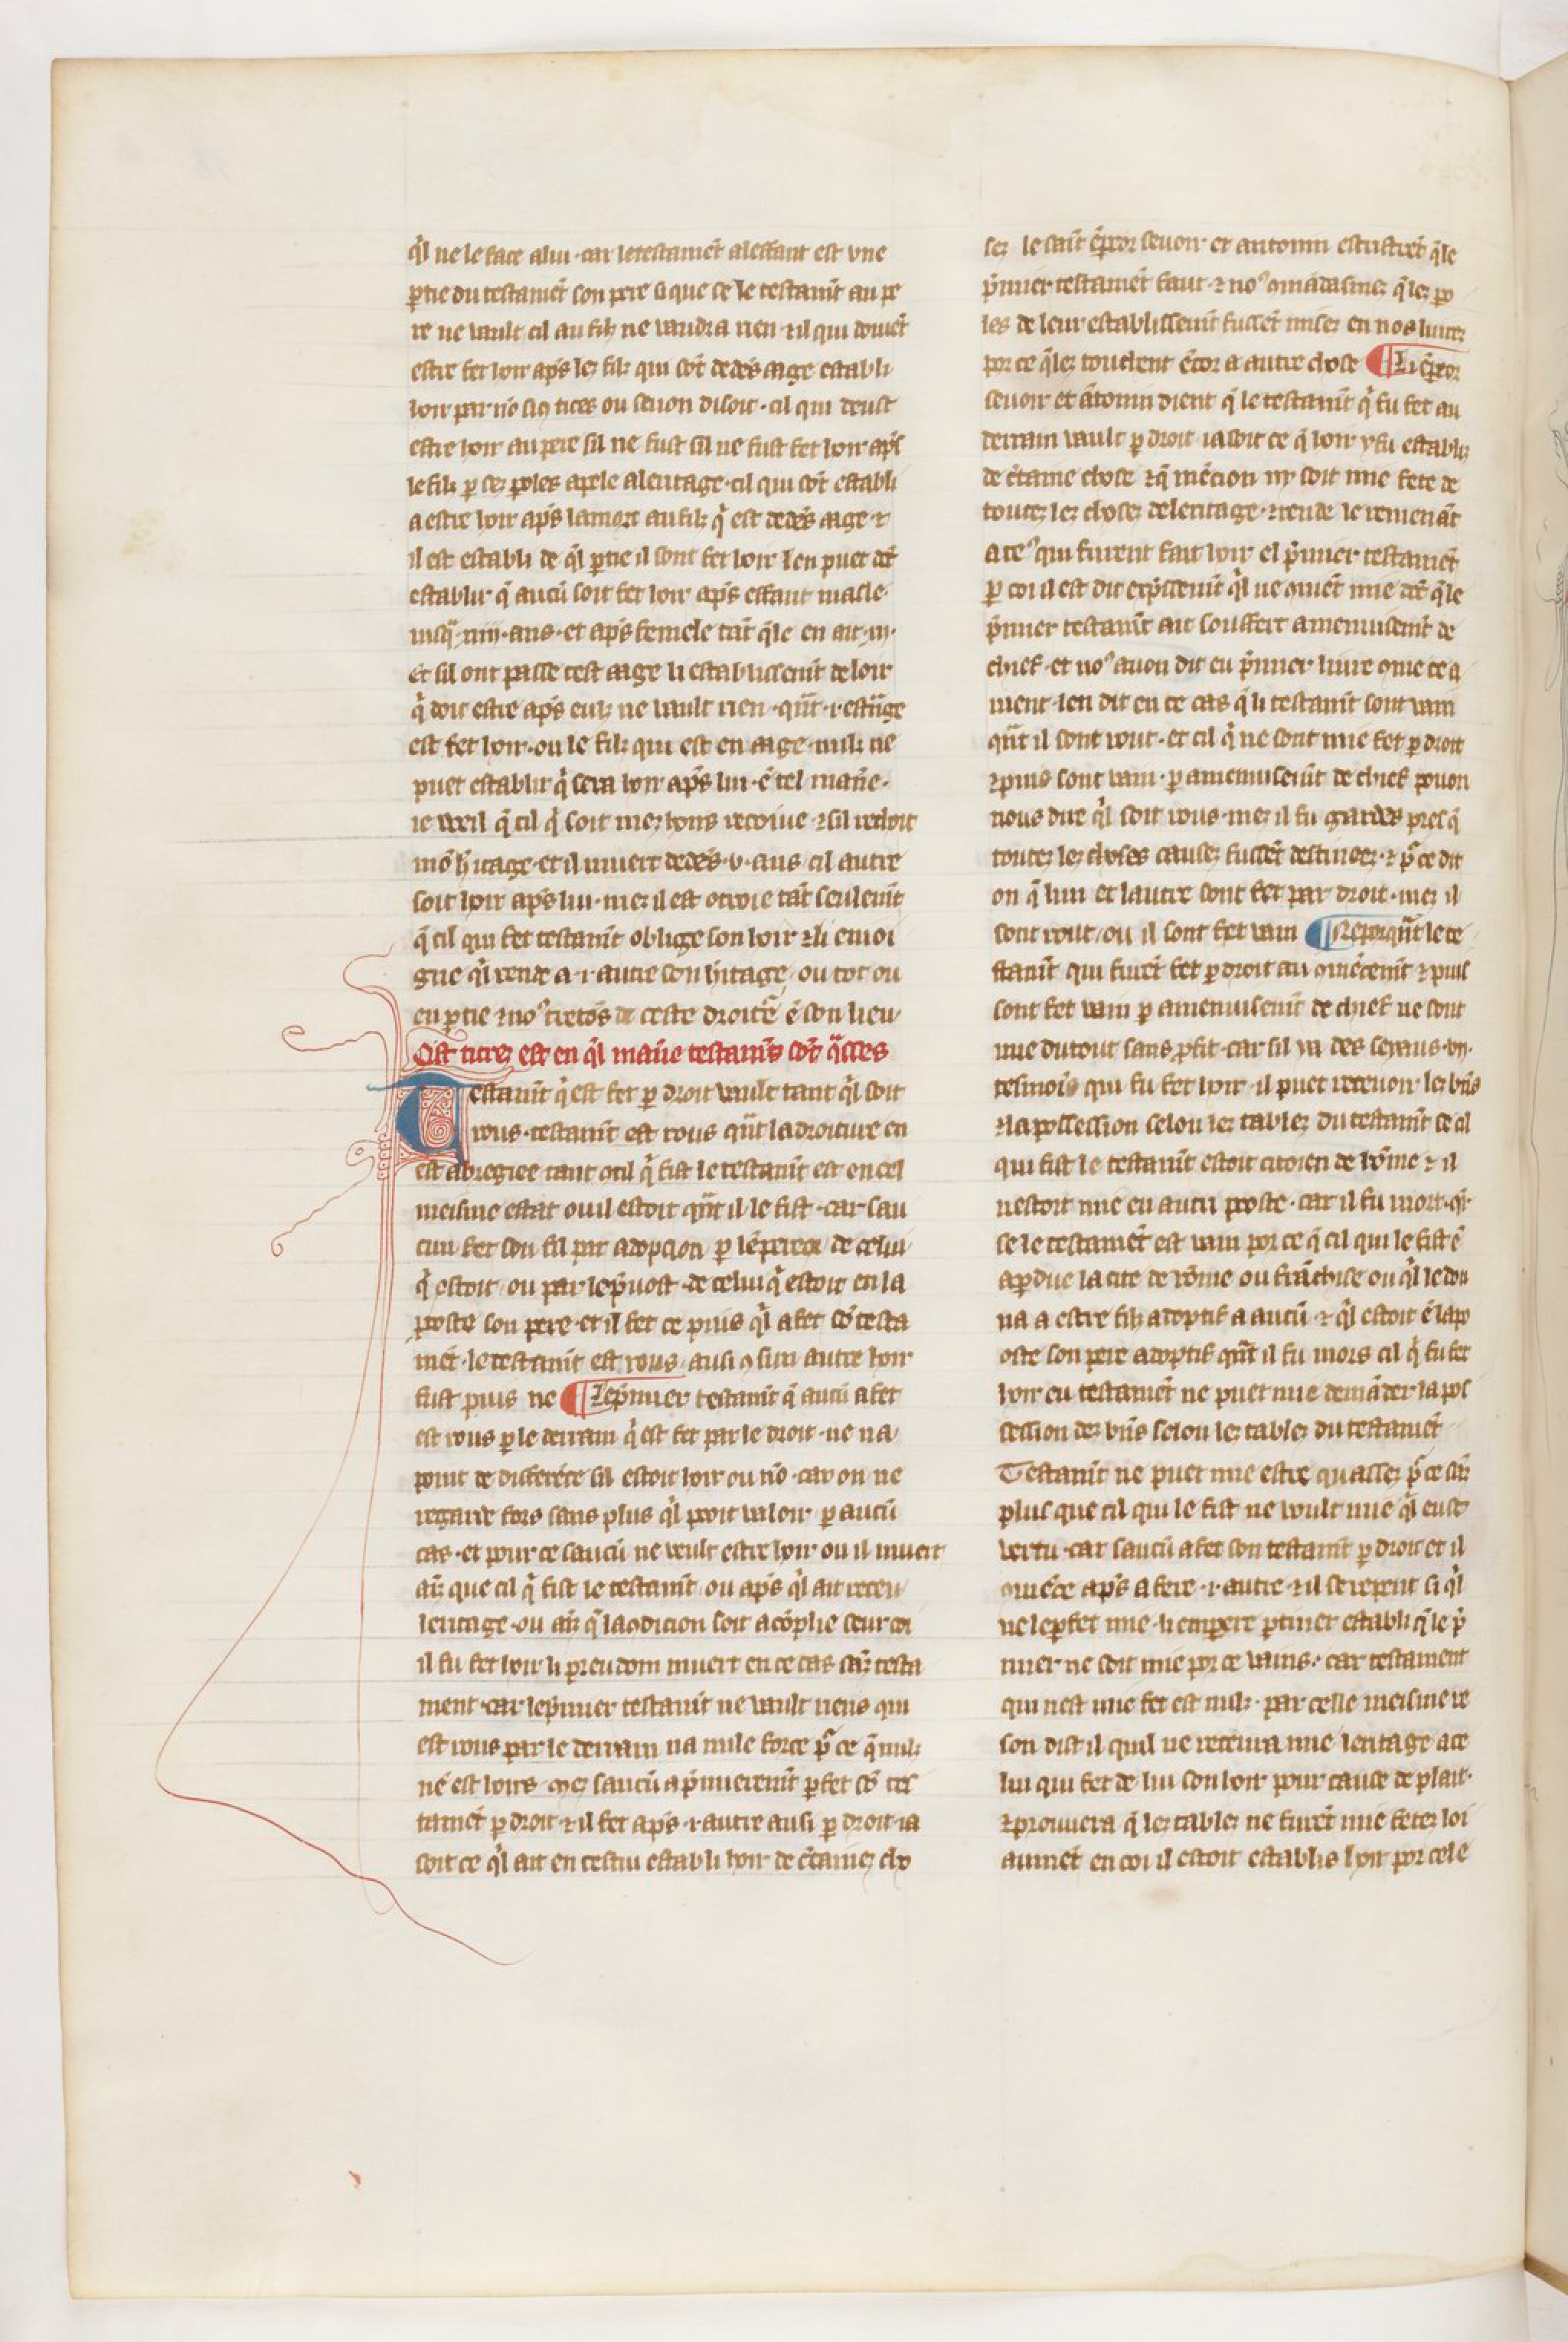 q̓l ne le face a lui · car le testamēt a leffant est vne
ꝑtie du testamēt son pere si que se le testam̄t au pe
re ne vault cil au filz ne vaudra rien · ⁊ il qui doiuēt
estre fet hoir apᷤs les filz qui sōt dedēs aage establi
estre hoir au pere sil ne fust sil ne fust fet hoir apᷤs
le filz ꝑ ses poles apele a leritage · cil qui sōt establi
a estre hoir apᷤs la mort au filz q̓ est dedēs aage ⁊
il est establi de q̓l ꝑtie il sont fet hoir len puet dōt
establir q̄ aucū soit fet hoir apᷤs effant masle ·
iusq̄ · xiiii · ans · et apᷤs femele tāt q̄le en ait · xii ·
Et sil ont passe cest aage li establissem̄t de loir
q̓ doit estre apᷤs eulz ne vault rien · qn̄t · i · estrāge
est fet hoir · ou le filz qui est en aage · nulz ne
puet establir q̓ sera hoir apᷤs lui · ē tel mane ·
ie weil q̄ cil q̓ soit mes hoirs recoiue ⁊ sil recoit
mō h̄itage · et il muert dedēs · v · ans cil autre
soit hoir apᷤs lui · mes il est otroie tāt seulem̄t
q̄ cil qui fet testam̄t oblige son hoir ⁊ li enioi
gne q̓l rende a · i · autre son h̄itage / ou tot ou
en ꝑtie ⁊ noꝰ tretōs de ceste droitē ē son lieu
Cist titres est en q̓l mane testam̄s sōt q̄sses
Testam̄t q̓ est fet ꝑ droit vault tant q̓l soit
rous · testam̄t est rous qn̄t la droiture en
est abregiee tant o cil q̓ fist le testam̄t est en cel
meisme estat ou il estoit qn̄t il le fist · car sau
cun fet son fil par adopcion ꝑ lēpereor de celui
q̓ estoit / ou par le p̄uost · de celui q̓ estoit en la
poste son pere · et il fet ce puis q̓l a fet sō testa
mēt · le testam̄t est rous ausi ꝯ sun autre hoir
fust puis ne ¶ Le p̄mier testam̄t q̄ aucū a fet
est rous ꝑ le derrain q̓ est fet par le droit · ne na
point de differēce sil estoit hoir ou nō · car on ne
regarde fors sans plus q̓l poit valoir ꝑ aucū
cas · et pour ce saucū ne veult estre hoir ou il muert
ainz que cil q̓ fist le testam̄t / ou apᷤs q̓l ait receu
leritage · ou ainz q̄ la ꝯdicion soit acōplie seur coi
il fu fet hoir li preudom muert en ce cas sanz testa
ment · car le p̄mier testam̄t ne vault riens qui
est rous par le derrain na nule force p̄ ce q̄ nulz
nē est hoirs · Mes saucū a p̄mierem̄t ꝑfet sō tes
tamēt ꝑ droit · ⁊ il fet apᷤs · i · autre ausi ꝑ droit · ia
soit ce q̓l ait en cestui establi hoir de c̄taines cho
ses le saīt ēpeor seuoir et antonin
p̄mier testamēt faut · ⁊ noꝰ ꝯmādasmes q̄ les po
les de leur establissem̄t fussēt mises en nos liures
por ce q̄les touchent ēcor a autre chose ¶ Li ēpeor
seuoir et ātonin dient q̄ le testam̄t q̓ fu fet au
derrain vault ꝑ droit · ia soit ce q̄ hoir y fu establiz
de c̄taine chose ⁊ q̄ mēcion ny soit mie fete de
toutes les choses de leritage · ⁊ rende le remenāt
a ceꝰ qui furent fait hoir el p̄mier testamēt
ꝑ coi il est dit
p̄mier testam̄t ait souffert amenuisem̄t de
chief · et noꝰ auon dit eu p̄mier liure ꝯme ce a
uient · len dit en ce cas q̄ li testam̄t sont vain
qn̄t il sont rout · et cil q̓ ne sont mie fet ꝑ droit
⁊ puis sont vain · ꝑ amenuisem̄t de chief pouon
nous dire q̓l soit rous · mes il fu gardes pres q̄
toutes les choses causes fussēt destinees · ⁊ p̄ ce dit
on q̄ lun et lautre sont fet par droit · mes il
sont rout / ou il sont fet vain ¶ Neporqn̄t le te
stam̄t qui furēt fet ꝑ droit au ꝯmēcem̄t ⁊ puis
sont fet vain ꝑ amenuisem̄t de chief ne sont
mie du tout sans ꝓfit · car sil ya des seyaus · vii ·
tesmoīs qui fu fet hoir · il puet receuoir les biēs
⁊ la possession selon les tables du testam̄t se cil
qui fist le testam̄t estoit citoien de rōme ⁊ il
nestoit mie en autri poste · car il fu mort ·
se le testamēt est vain por ce q̄ cil qui le fist ē
a ꝑdue la cite de rōme ou frāchise ou q̓l se don
na a estre filz adoptif a aucū · ⁊ q̓l estoit ē la po
oste son pere adoptif qn̄t il fu mors cil q̓ fu fet
hoir eu testamēt ne puet mie demāder la pos
session des biēs selon les tables du testamēt
Testam̄t ne puet mie estre quassez p̄ ce sāz
plus que cil qui le fist ne woult mie q̓l eust
vertu · car saucū a fet son testam̄t ꝑ droit et il
ꝯmēce apᷤs a fere · i · autre · ⁊ il se repent si q̓l
ne le ꝑfet mie · li emꝑere ꝑtiner establi q̄ le p̄
mier ne soit mie por ce vains · car testament
qui nest mie fet est nulz · par celle meisme re
son dist il quil ne receura mie leritage a ce
lui qui fet de lui son hoir pour cause de plait ·
⁊ prouuera q̄ les tables ne furēt mie fetes loi
aumēt en coi il estoit establis hoir por cele